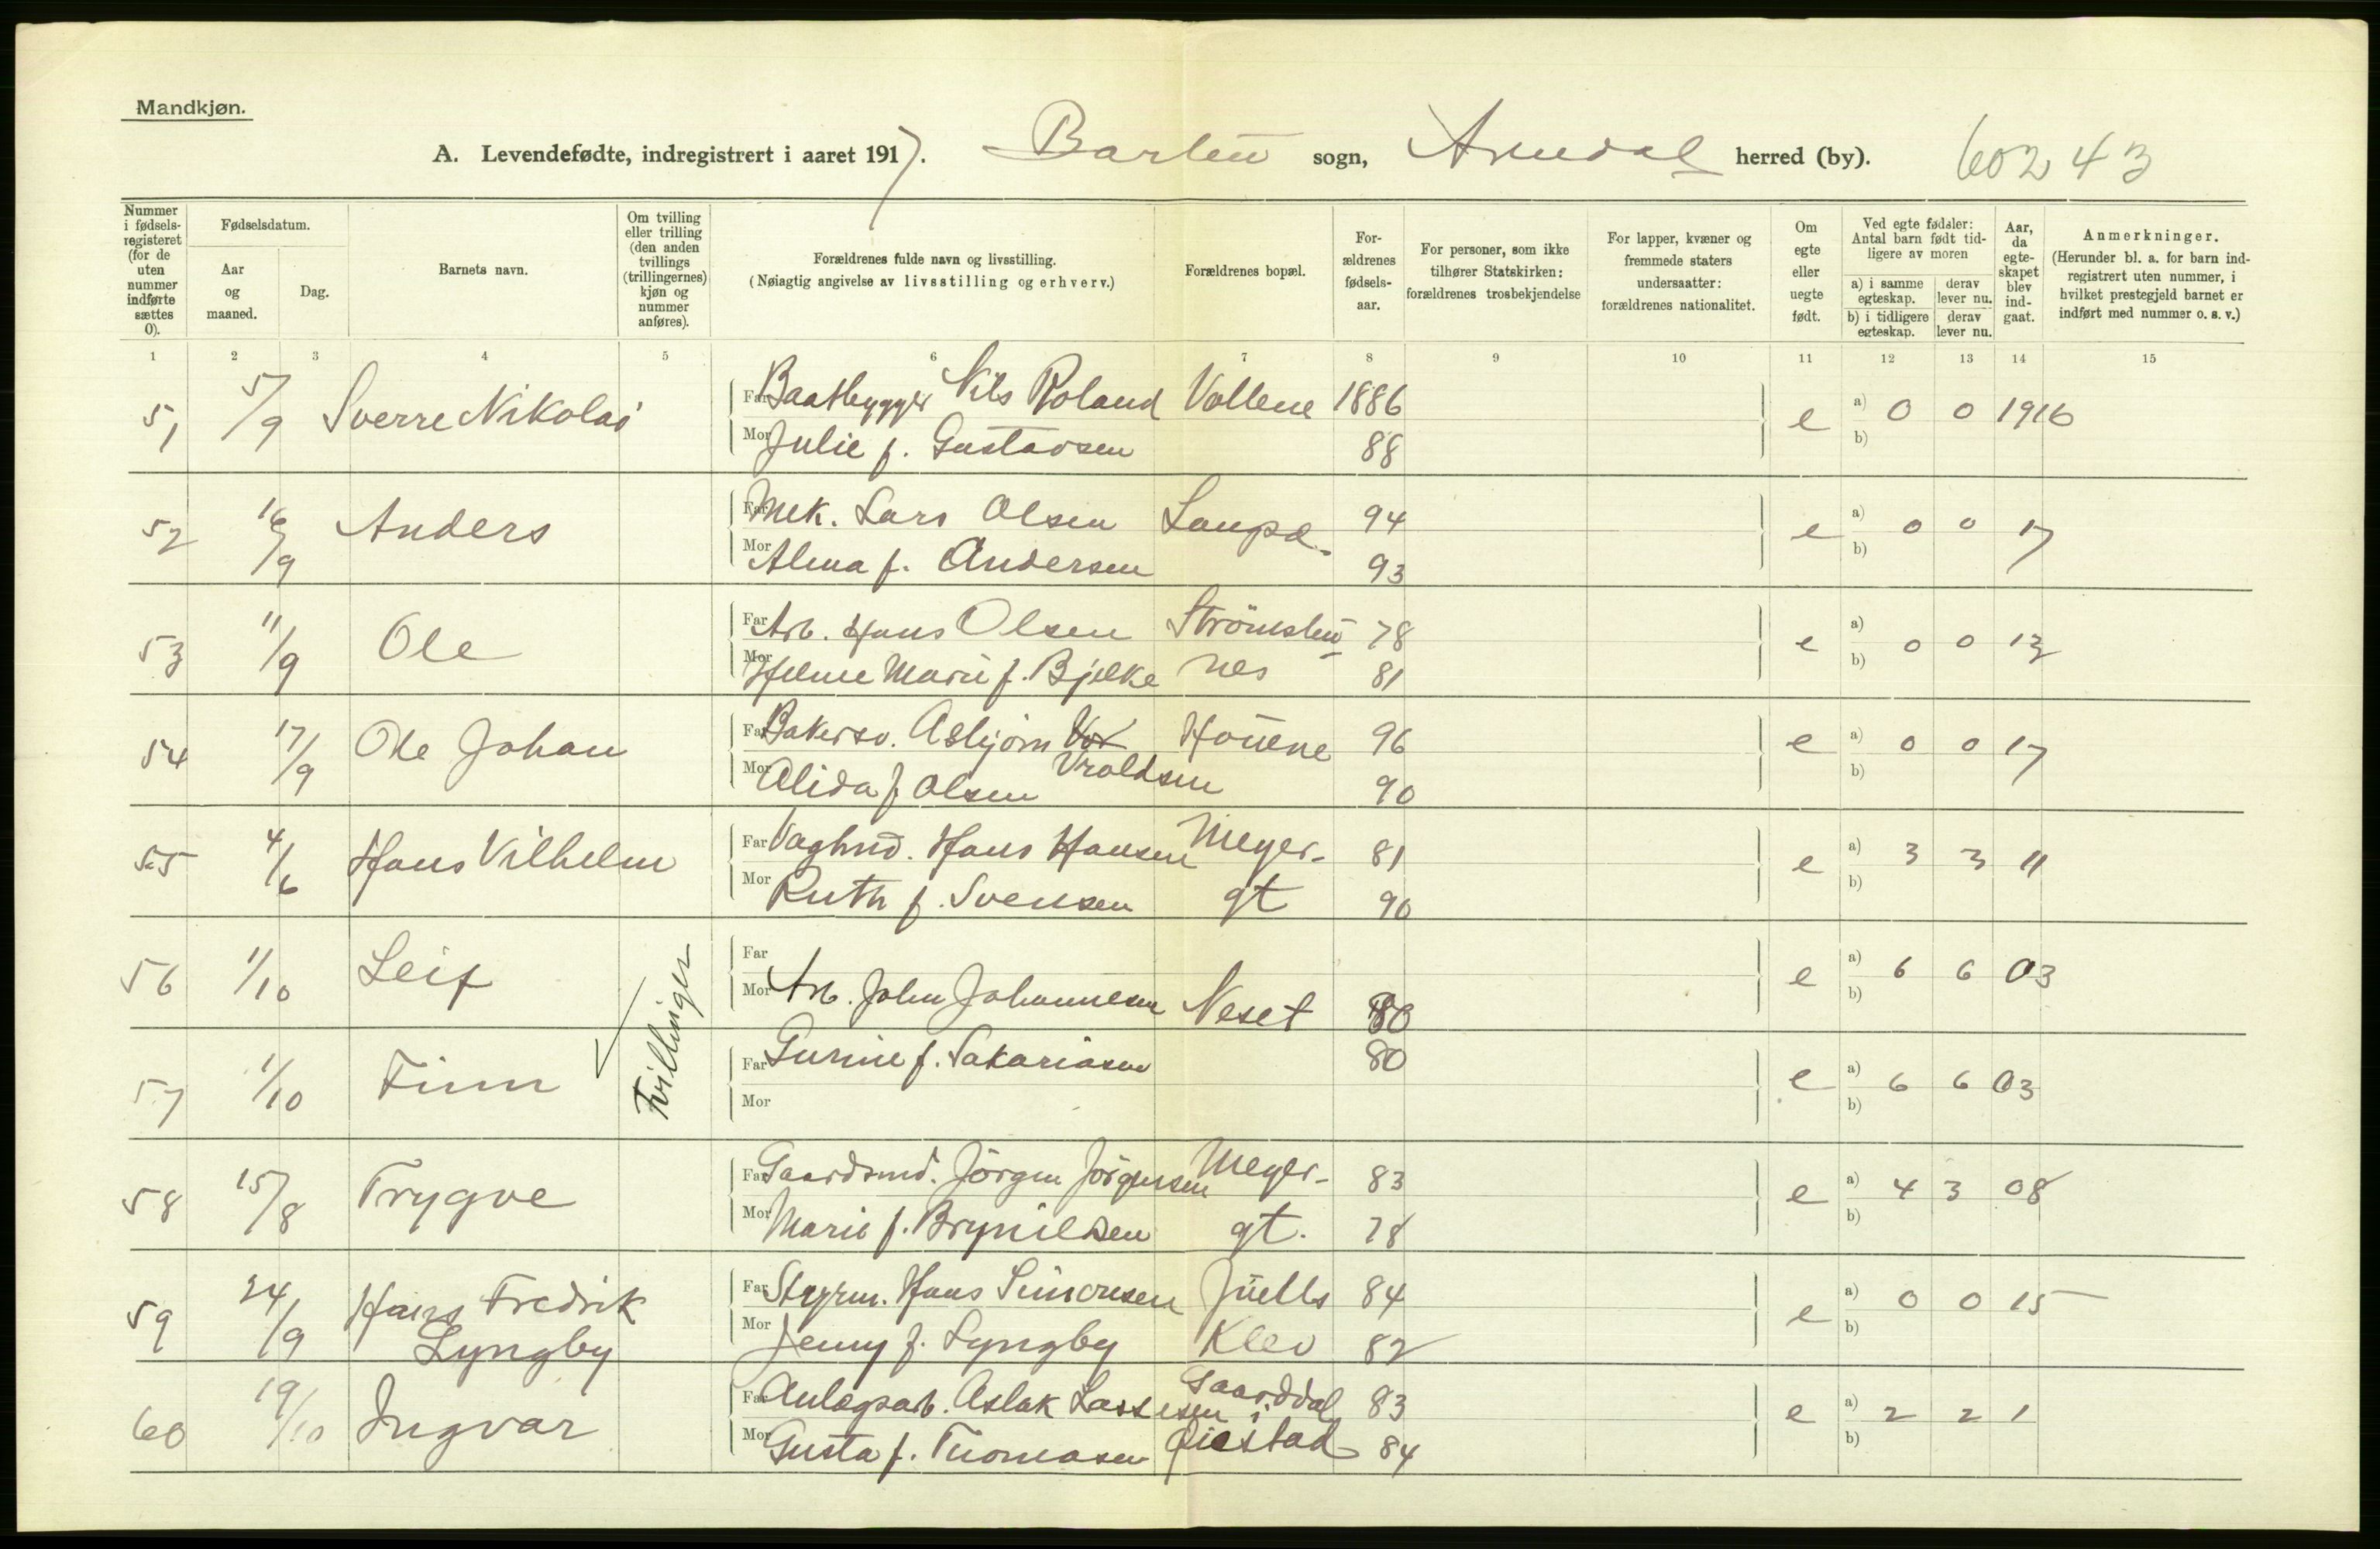 Mandkjøn.
A. Levendefødte, indregistrert i aaret 1917. Barbu sogn, Arendal herred (by). 60243
Nummer i fødselsregisteret (for de uten nummer indførte sættes 0).
Fødselsdatum.
Aar og maaned.
Dag.
Barnets navn.
Om tvilling eller trilling (den anden tvillings (trillingernes) kjøn og nummer anføres).
Forældrenes fulde navn og livsstilling.
(Nøiagtig angivelse av livsstilling og erhverv.)
Forældrenes bopæl.
Forældrenes fødselsaar.
For personer, som ikke tilhører Statskirken: forældrenes trosbekjendelse
For lapper, kvæner og fremmede staters undersaatter: forældrenes nationalitet.
Om egte eller uegte født.
Ved egte fødsler: Antal barn født tidligere av moren
a) i samme egteskap. derav lever nu.
b) i tidligere egteskap. derav lever nu.
Aar, da egteskapet blev indgaat.
Anmerkninger.
(Herunder bl. a. for barn indregistrert uten nummer, i hvilket prestegjeld barnet er indført med nummer o. s. v.)
1 2 3 4 5 6 7 8 9 10 11 12 13 14 15
51 5/9 Sverre Nikolai Far Baatbygger Nils Roland Vollene 1886 e a) 0 0 1916
Mor Julie f. Gustavsen 88 b)
52 16/9 Anders Far Mek. Lars Olsen Langsæ. 94 e a) 0 0 17
Mor Alma f. Andersen 93 b)
53 11/9 Ole Far Arb. Hans Olsen Strömsbu 78 e a) 0 0 13
Mor Helene Marie f. Bjelke nes 81 b)
54 17/9 Ole Johan Far Bakersv. Asbjörn Houene 96 e a) 0 0 17
Vroldsen
Mor Alida f Olsen 90 b)
55 4/6 Hans Vilhelm Far Hans Hansen Meyer- 81 e a) 3 3 11
Mor Ruth f. Svensen gt 90 b)
56 1/10 Leif Tvillinger Far e a) 6 6 03
Mor Arb. John Johannesen Neset 80 b)
57 1/10 Finn Far Gurine f. Sakariasen 80 e a) 6 6 03
Mor b)
58 15/8 Trygve Far Gaardsmd. Jörgen Jörgensen Meyer- 83 e a) 4 3 08
Mor Marie f. Brynildsen gt. 78 b)
59 24/9 Hans Fredrik Far Styrm. Hans Simonsen Juells 84 e a) 0 0 15
Lyngby Mor Jenny f. Lyngby Klev 82 b)
60 19/10 Ingvar Far Anlægsarb. Aslak Lassesen Gaarddal i 83 e a) 2 2 1
Mor Gusta f. Thomasen Øiestad 84 b)